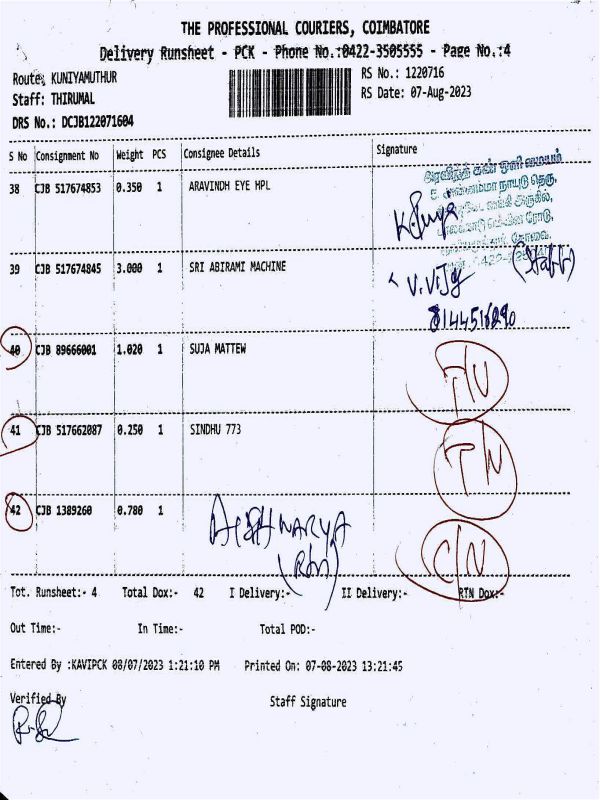 THE PROFESSIONAL COURIERS, COIMBATORE
Delivery Runsheet - PCK - Phone No.:0422-3505555 - Page No.:4
Route: KUNIYAMUTHUR
RS No.: 1220716
Staff: THIRUMAL
RS Date: 07-Aug-2023
DRS No.: DCJB122071604
S No Consignment No Weight PCS Consignee Details Signature
38 CJB 517674853 0.350 1 ARAVINDH EYE HPL
அரவிந்த் கண்
நாயுடு தெரு,
39 CJB 517674845 3.000 1 SRI ABIRAMI MACHINE
(Staff)
8144516290
40 CJB 89666001 1.020 1 SUJA MATTEW
T/N
41 CJB 517662087 0.250 1 SINDHU 773
T/N
42 CJB 1389260 0.780 1 AISHWARYA
C/N
Tot. Runsheet:- 4 Total Dox:- 42 I Delivery:- II Delivery:- RTN Dox:-
Out Time:- In Time:- Total POD:-
Entered By :KAVIPCK 08/07/2023 1:21:10 PM Printed On: 07-08-2023 13:21:45
Verified By
Staff Signature